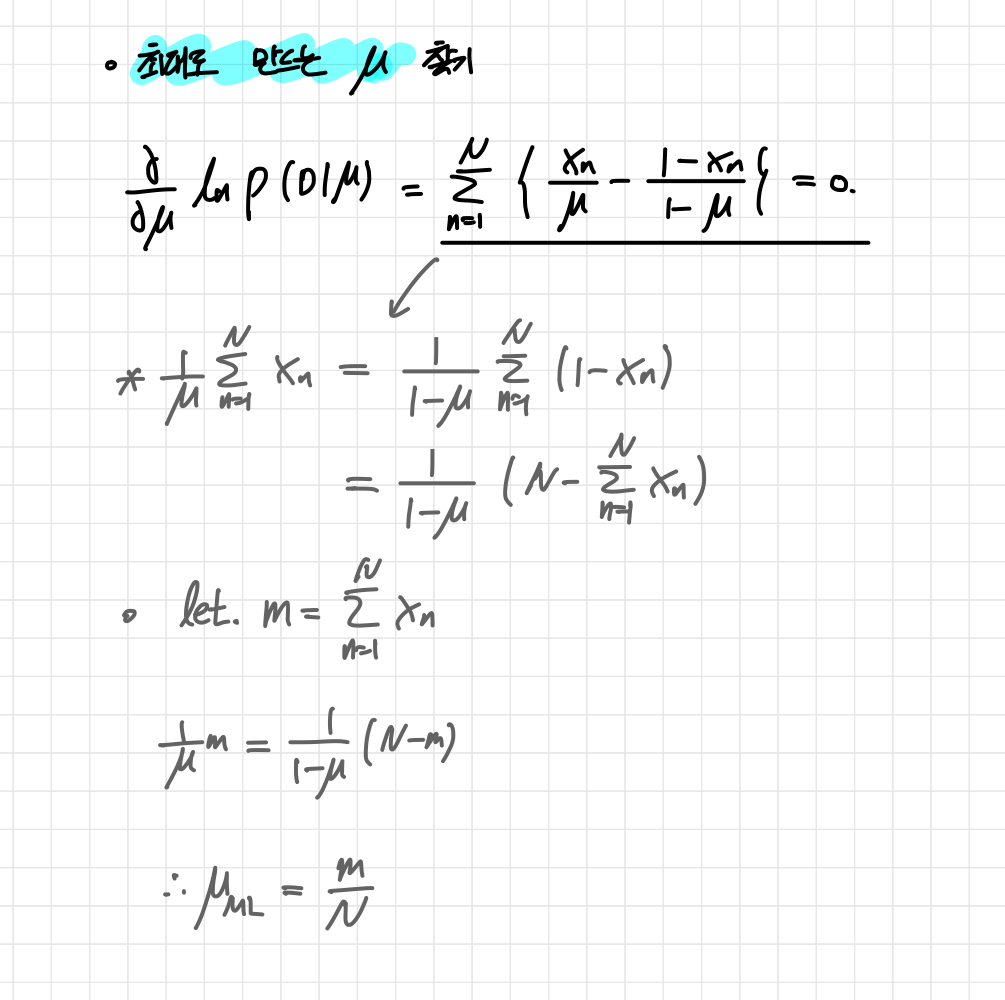 • 최대로 만드는 μ 찾기
∂/∂μ ln p(D|μ) = Σ_{n=1}^{N} { x_n/μ - (1-x_n)/(1-μ) } = 0.
* 1/μ Σ_{n=1}^{N} x_n = 1/(1-μ) Σ_{n=1}^{N} (1-x_n)
= 1/(1-μ) (N - Σ_{n=1}^{N} x_n)
• let. m = Σ_{n=1}^{N} x_n
1/μ m = 1/(1-μ) (N-m)
∴ μ_{ML} = m/N